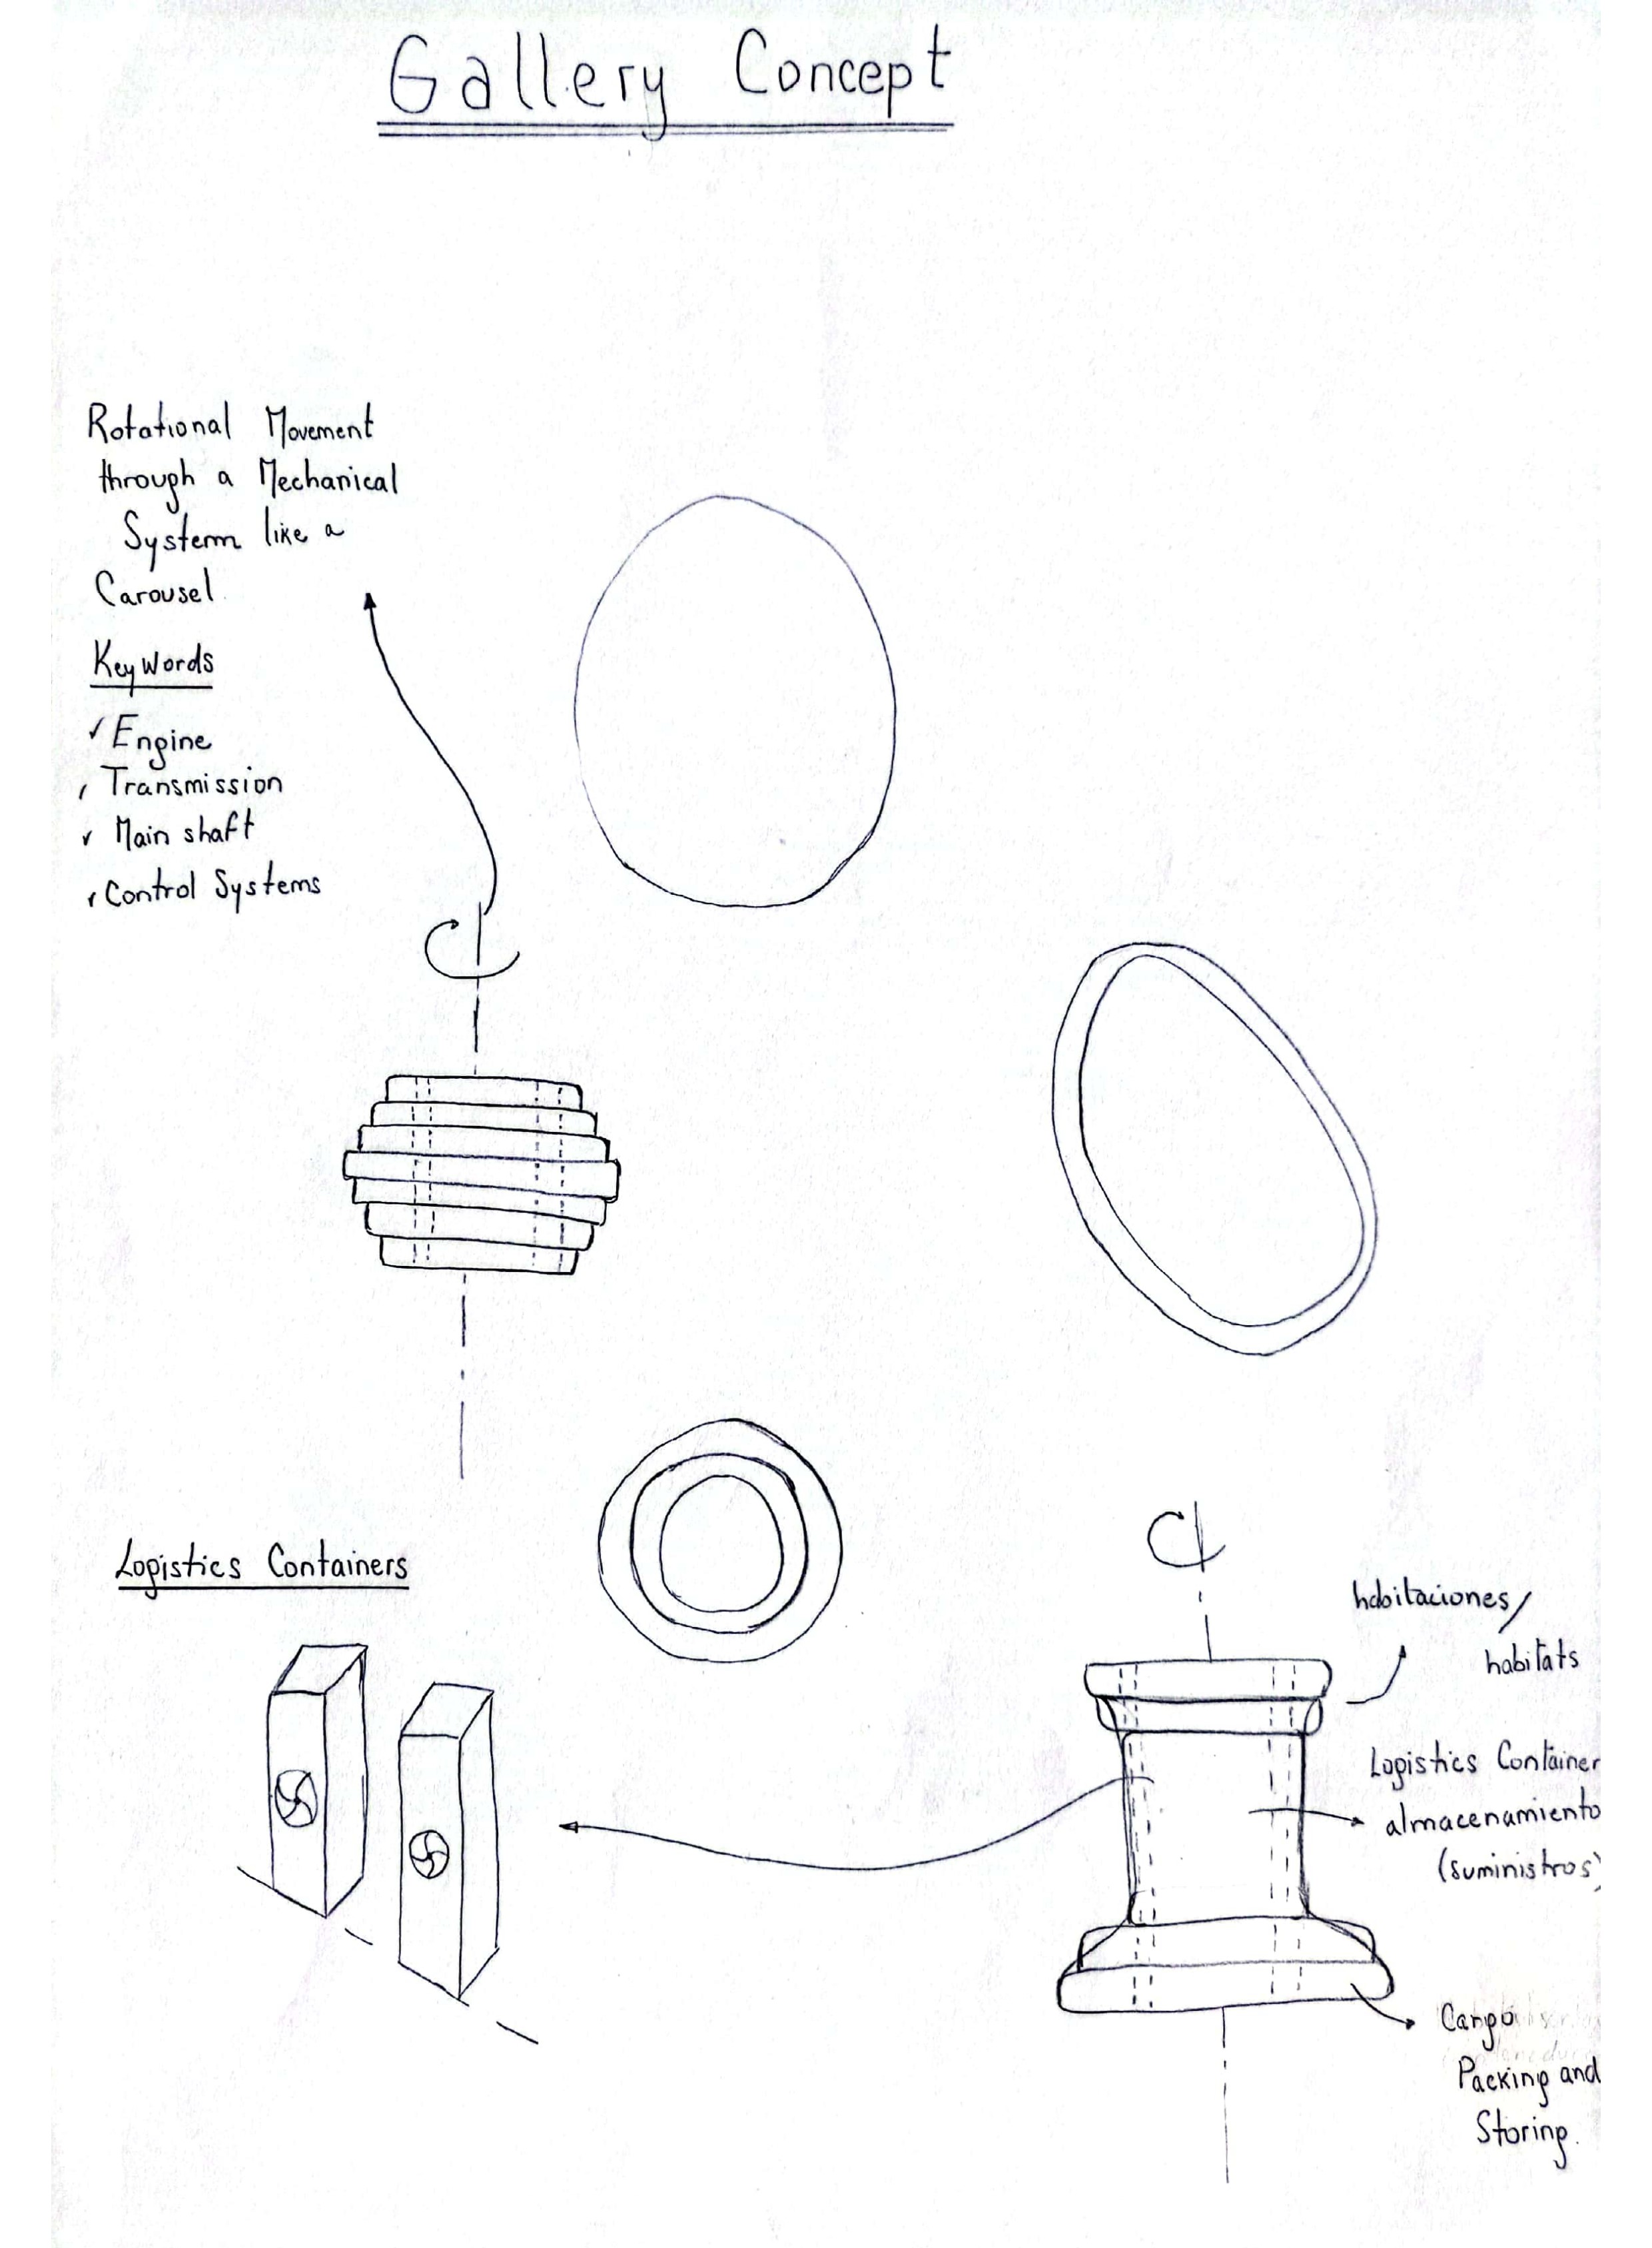 Gallery Concept
Rotational Movement
through a Mechanical
System like a
Carousel.
Keywords
✓ Engine
✓ Transmission
✓ Main shaft
✓ Control Systems
Logistics Containers
habitaciones/
habitats
Logistics Container
almacenamiento
(suministros)
Cargo
Packing and
Storing.